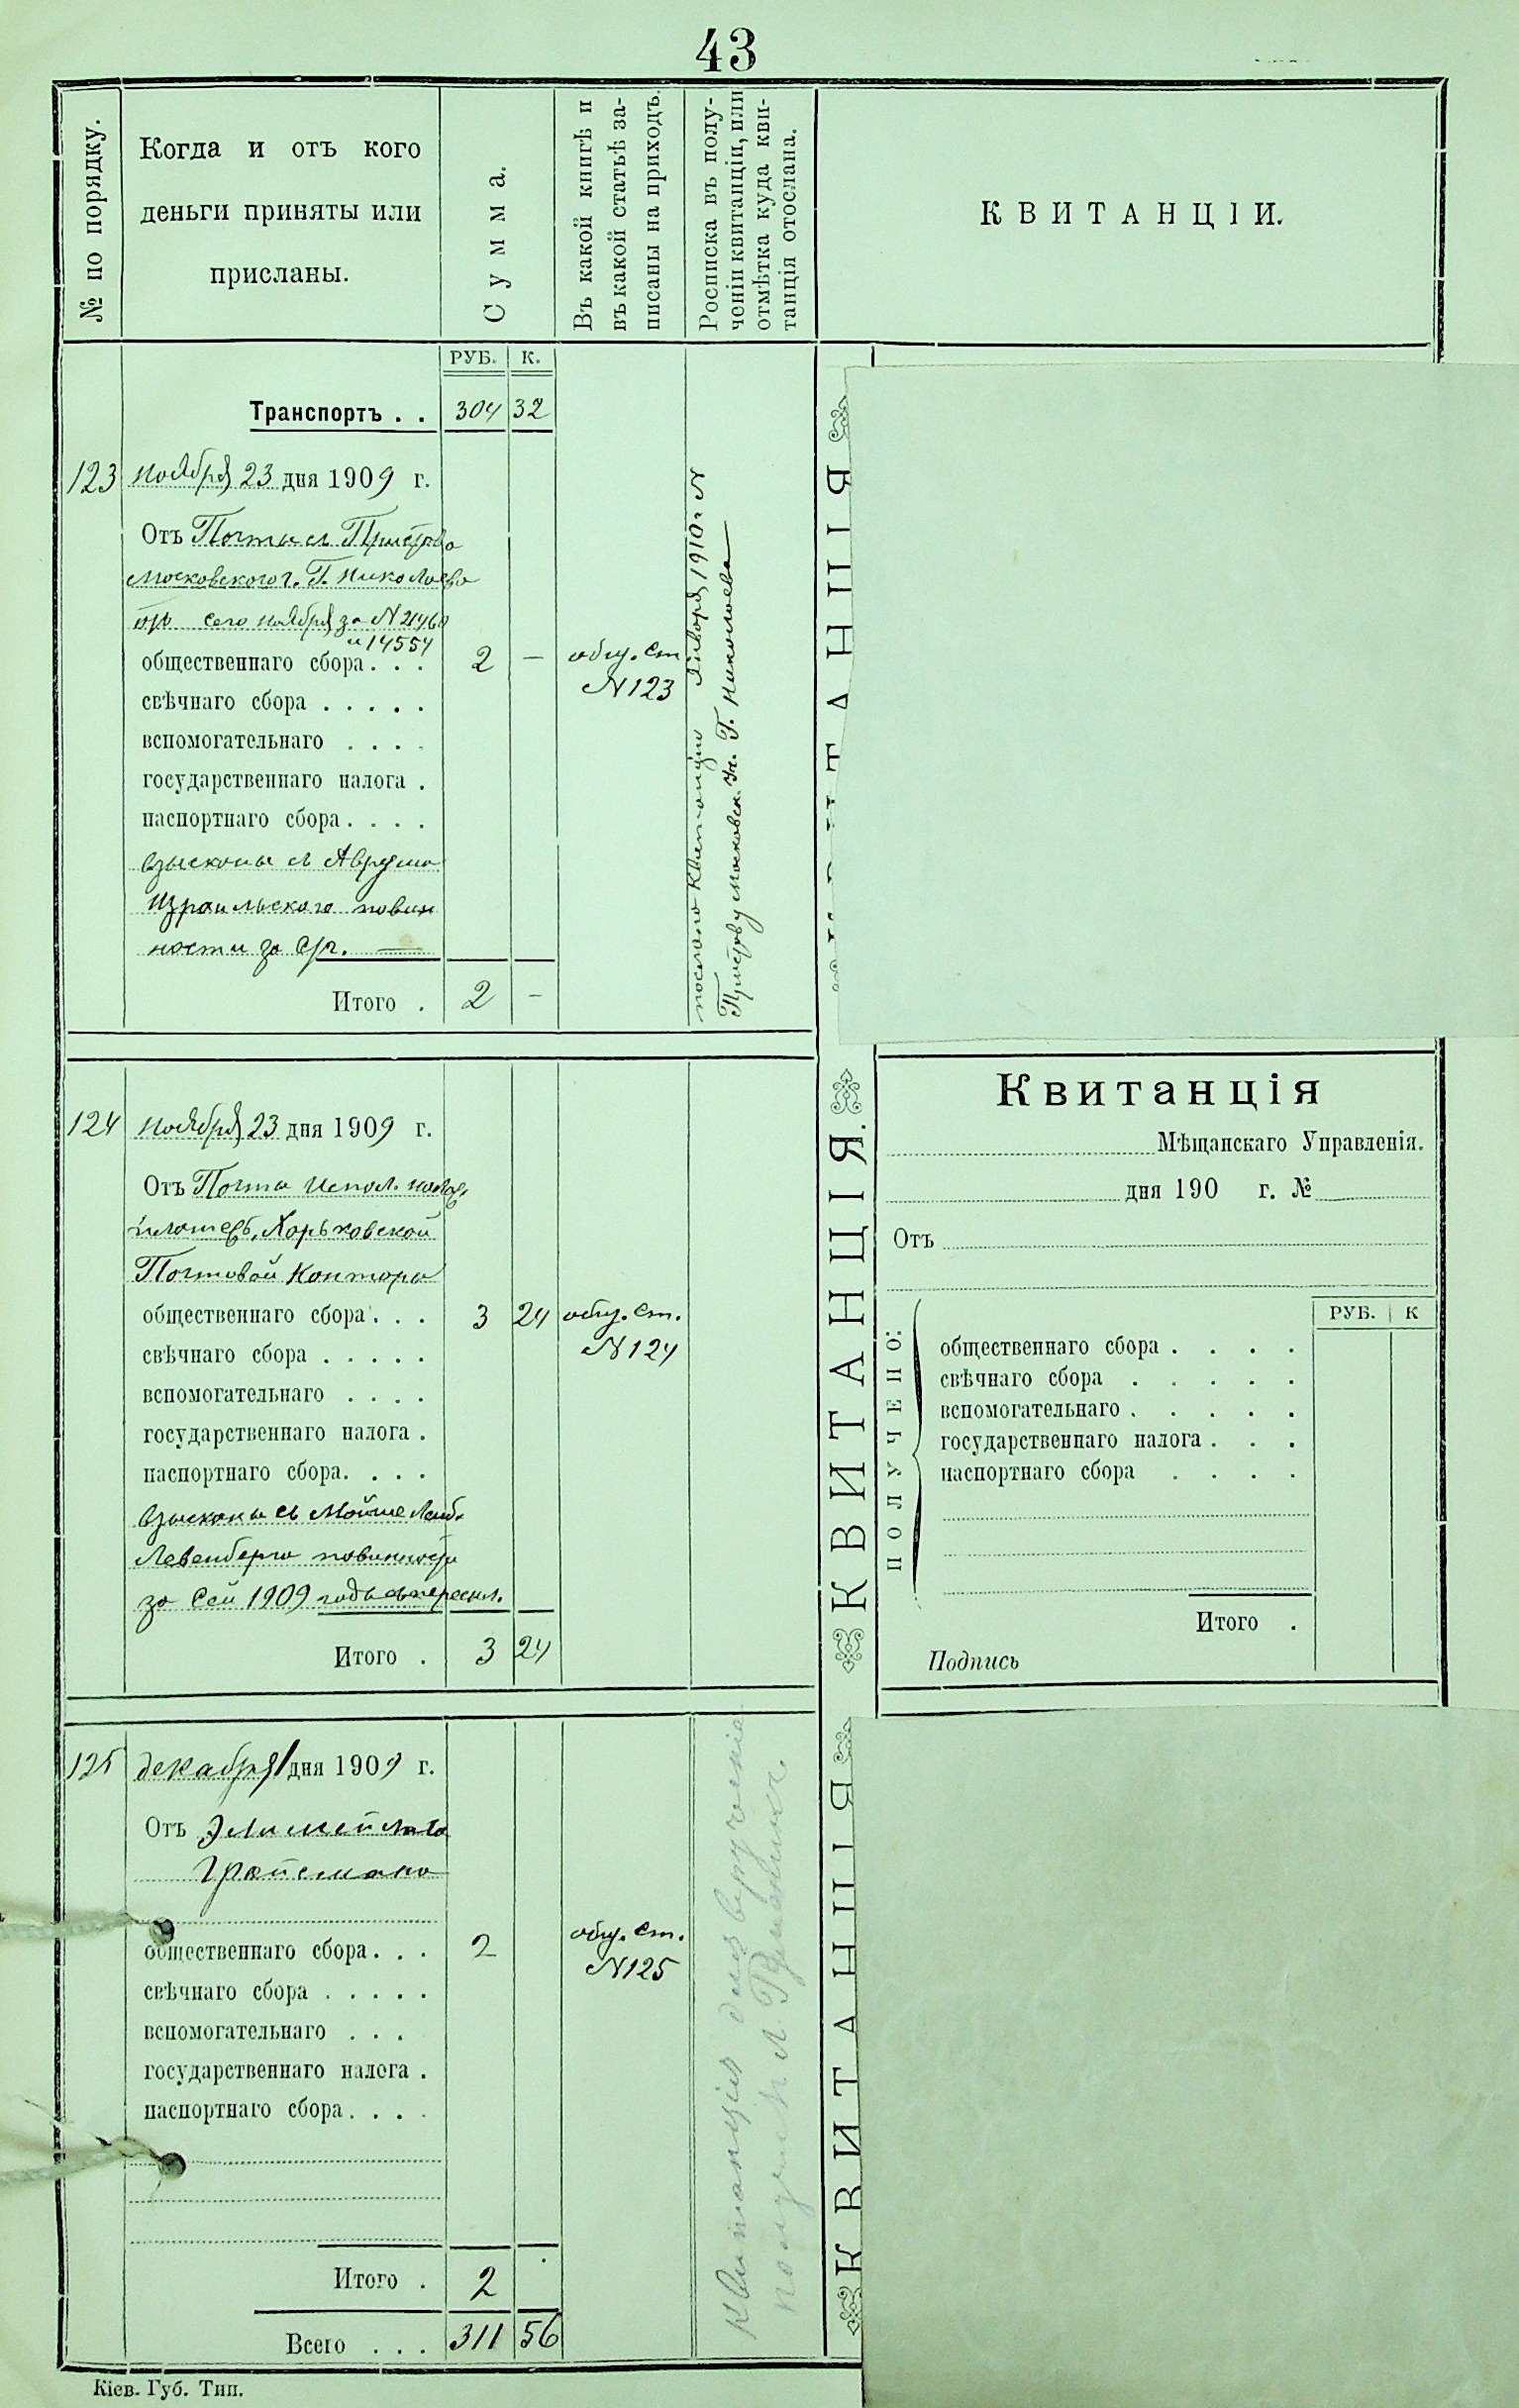 43
№ по порядку.
Когда и отъ кого
деньги приняты или
присланы.
Сумма.
Въ какой книгѣ и
въ какой статьѣ за-
писаны на приходъ.
Росписка въ полу-
ченіи квитанціи, или
отмѣтка куда кви-
танція отослана.
КВИТАНЦІИ.
РУБ. К.
Транспортъ . . 304 32
123 ноября 23 дня 1909 г.
Отъ Почты съ Пристава
Московскаго г. Николаева
сего ноября за N 21460
и 14554
общественнаго сбора . . . 2 — общ. ст
N 123
свѣчнаго сбора . . . . .
вспомогательнаго . . . .
государственнаго налога .
паспортнаго сбора . . . .
взысканы съ Аврума
Израильскаго повин
ности за
Итого . 2 —
Января 1910 г. N
Приставу Московск. Николаева
124 ноября 23 дня 1909 г.
Отъ Почты
Харьковской
Почтовой Конторы
общественнаго сбора . . . 3 24 общ. ст.
N 124
свѣчнаго сбора . . . . .
вспомогательнаго . . . .
государственнаго налога .
паспортнаго сбора. . . .
взысканы съ Мойше Лейб.
Левенберга повинности
за сей 1909 годъ
Итого . 3 24
125 декабря 1 дня 1909 г.
Отъ
общественнаго сбора . . . 2 общ. ст.
N 125
свѣчнаго сбора . . . . .
вспомогательнаго . . .
государственнаго налога .
паспортнаго сбора . . . .
Итого . 2
Всего . . . 311 56
Квитанція для врученія
получилъ
КВИТАНЦІЯ
КВИТАНЦІЯ.
КВИТАНЦІЯ
Квитанція
Мѣщанскаго Управленія.
дня 190 г. №
Отъ
РУБ. К
ПОЛУЧЕНО:
общественнаго сбора . . . .
свѣчнаго сбора . . . . .
вспомогательнаго . . . . .
государственнаго налога . . .
паспортнаго сбора . . . .
Итого .
Подпись
Кіев. Губ. Тип.